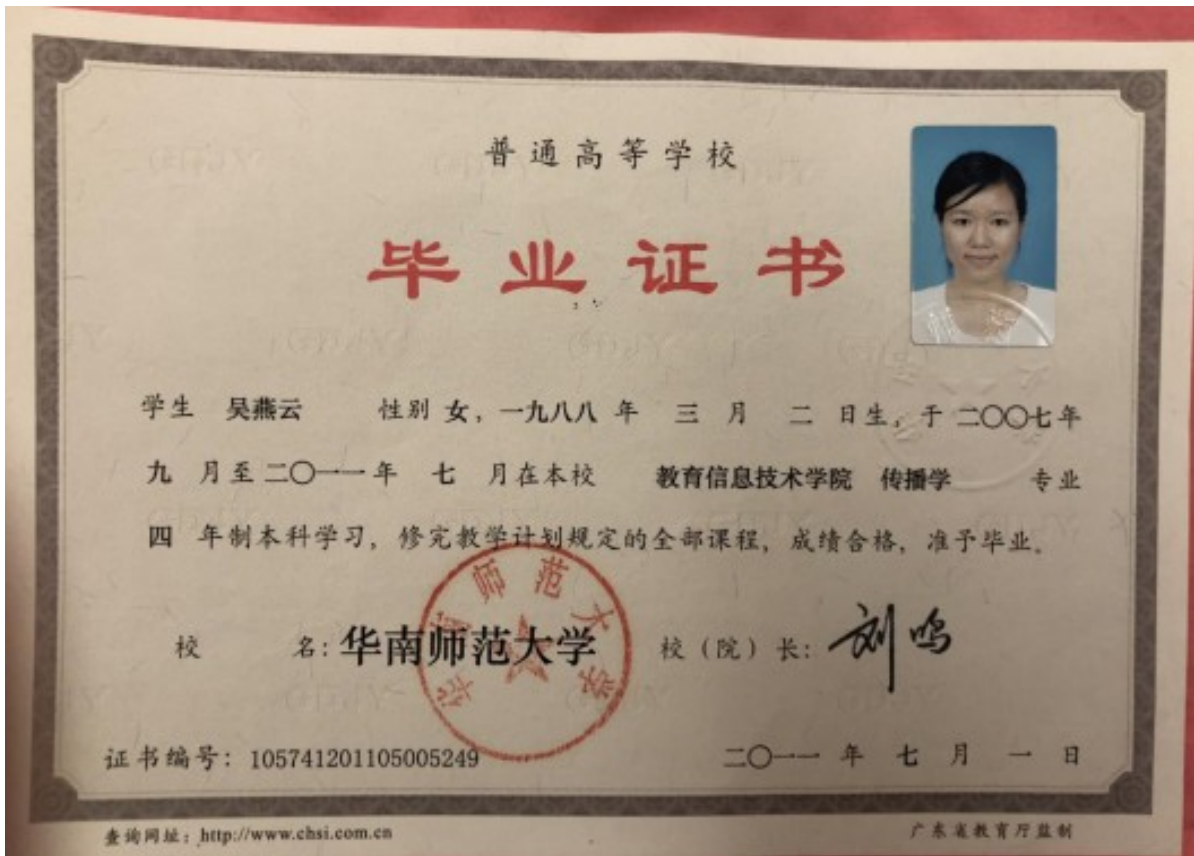 普通高等学校
毕业证书
学生 吴燕云 性别 女，一九八八 年 三 月 二 日生，于 二〇〇七年
九 月至 二〇一一 年 七 月在本校 教育信息技术学院 传播学 专业
四 年制本科学习，修完教学计划规定的全部课程，成绩合格，准予毕业。
华南师范大学
校 名：华南师范大学 校（院）长：刘鸣
证书编号：105741201105005249 二〇一一 年 七 月 一 日
查询网址：http://www.chsi.com.cn 广东省教育厅监制